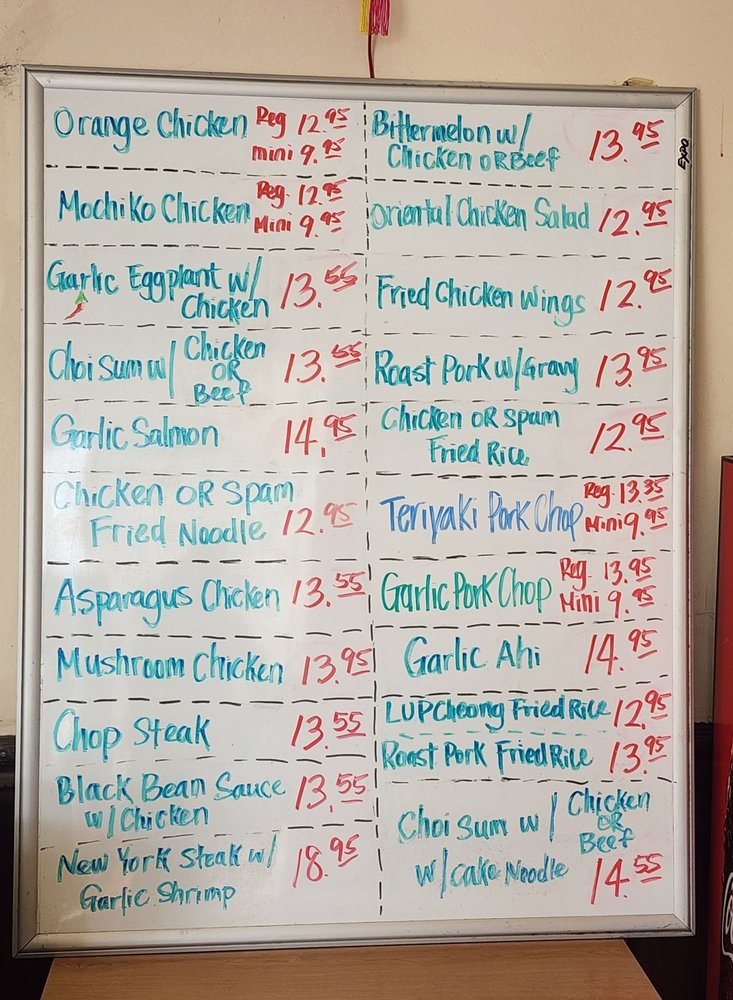 Orange Chicken Reg 12.95
mini 9.95
Mochiko Chicken Reg. 12.95
Mini 9.95
Garlic Eggplant w/
Chicken 13.55
Choi Sum w/ Chicken
OR
Beef 13.55
Garlic Salmon 14.95
Chicken OR Spam
Fried Noodle 12.95
Asparagus Chicken 13.55
Mushroom Chicken 13.95
Chop Steak 13.55
Black Bean Sauce
w/ Chicken 13.55
New York Steak w/
Garlic Shrimp 18.95
Bittermelon w/
Chicken OR Beef 13.95
Oriental Chicken Salad 12.95
Fried Chicken Wings 12.95
Roast Pork w/Gravy 13.95
Chicken OR Spam
Fried Rice 12.95
Teriyaki Pork Chop Reg. 13.35
Mini 9.95
Garlic Pork Chop Reg. 13.95
Mini 9.95
Garlic Ahi 14.95
LUPCheong Fried Rice 12.95
Roast Pork Fried Rice 13.95
Choi Sum w/ Chicken
OR
Beef
w/cake Noodle 14.55
EXPO